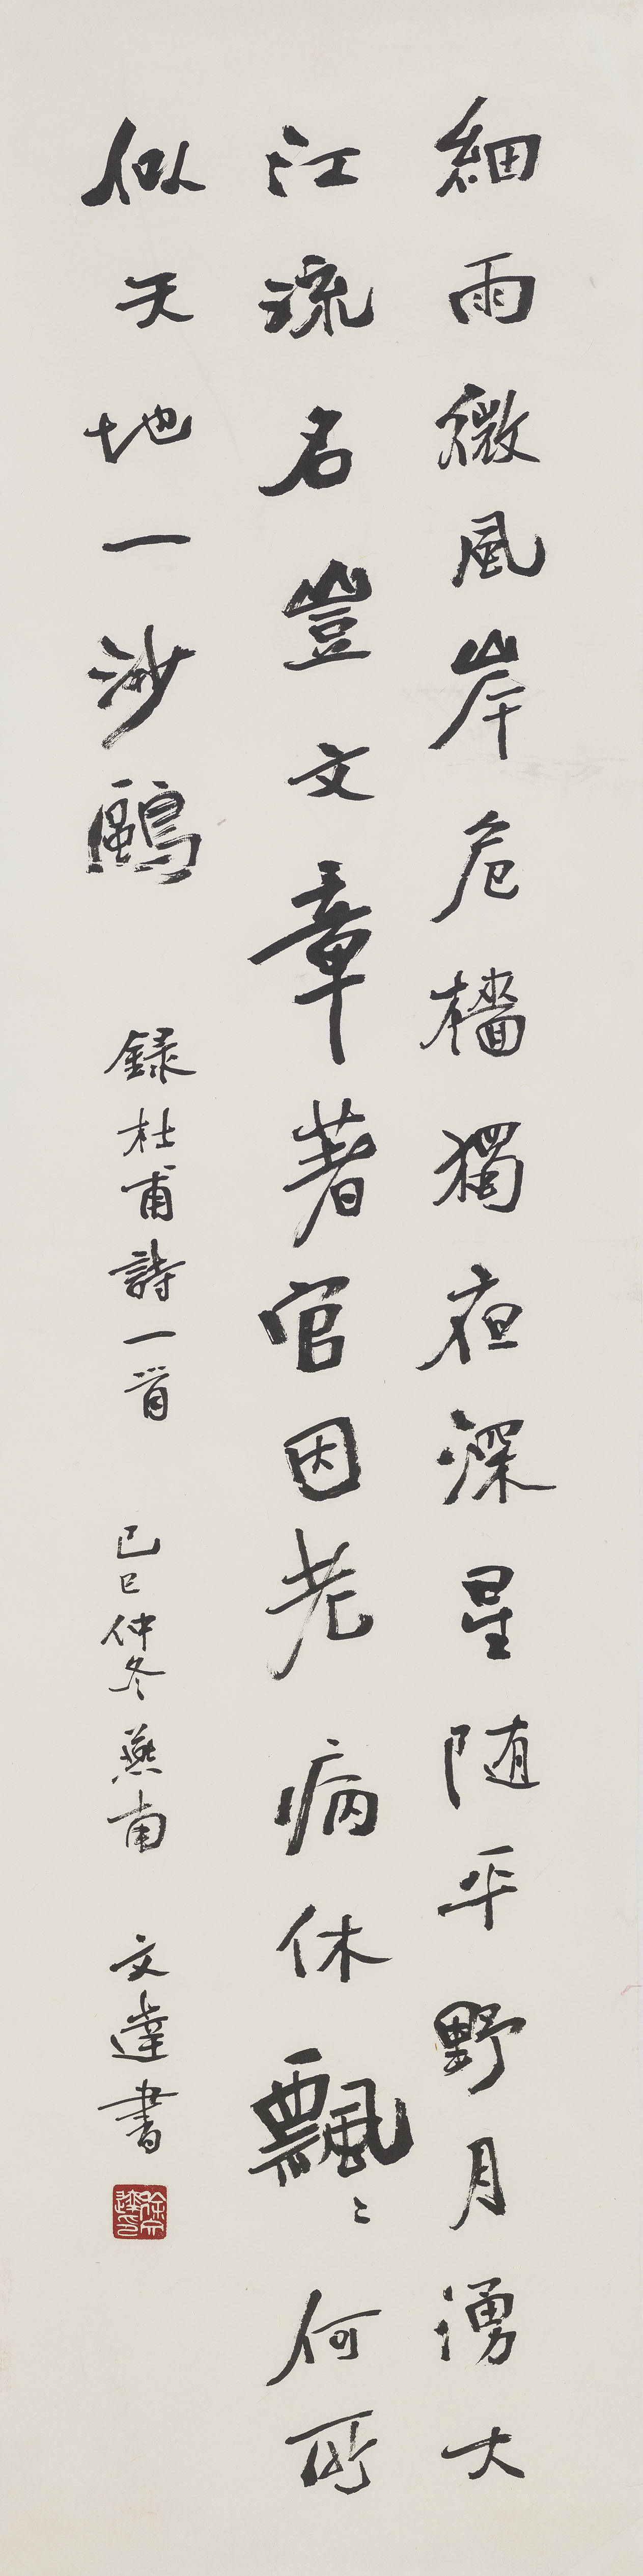 細雨微風岸危檣獨夜深星随平野月湧大
江流名豈文章著官因老病休飄〻何所
似天地一沙鷗 録杜甫詩一首 己巳仲冬燕南 文達書
徐文達印